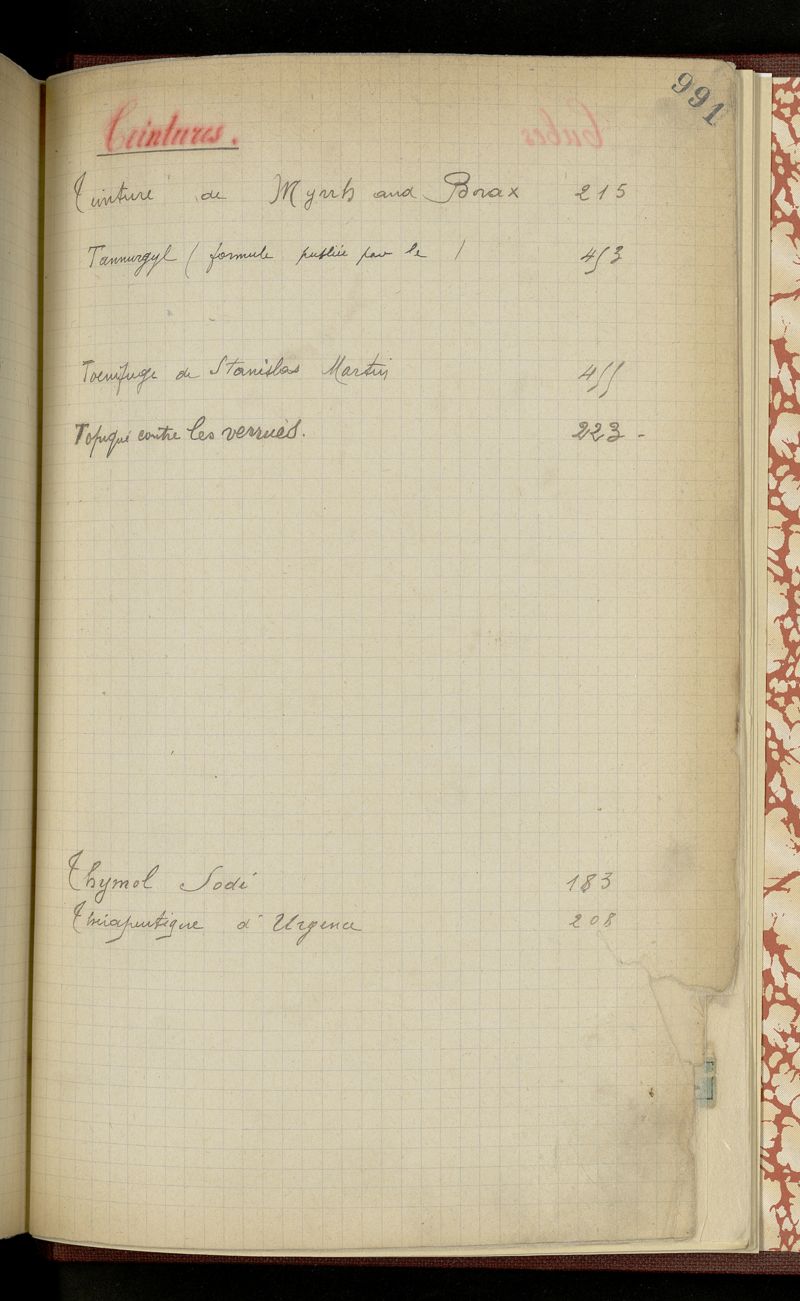 991
Teintures.
Teinture de Myrrh and Borax 215
Tannurgyl ( formule publiée par le ) 453
Toenifuge de Stanislas Martin 455
Topique contre les verrues. 223 -
Thymol Sodé 183
Thérapeutique d'Urgence 208